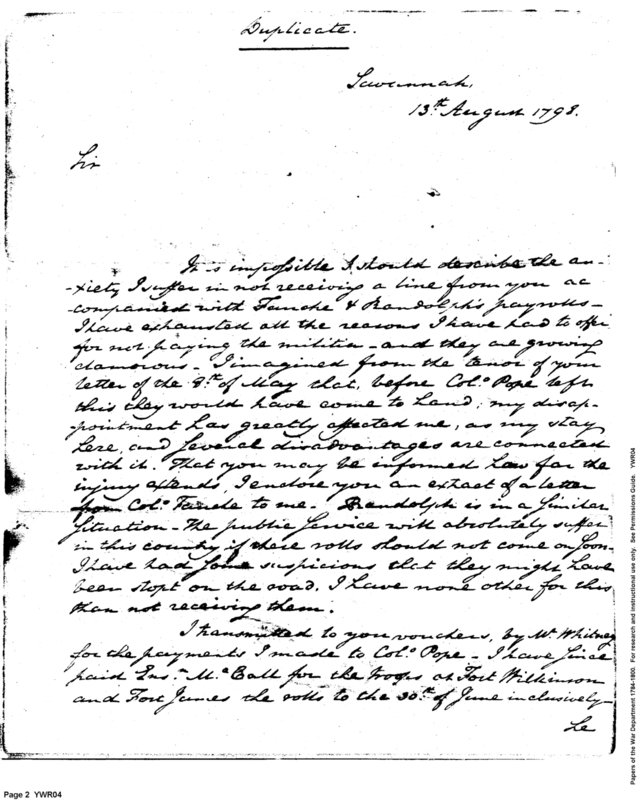 Duplicate.
Savannah,
13th August 1798.
Sir
It is impossible I should describe the an-
-xiety I suffer in not receiving a line from you ac
-companied with Fauche & Randolph's payrolls—
I have exhausted all the reasons I have had to offer
for not paying the militia - and they are growing
clamorous - I imagined from the tenor of your
letter of the 8th of May that, before Colo. Pope left
this they would have come to hand; my disap-
-pointment has greatly affected me, as my stay
here, and several disadvantages are connected
with it. That you may be informed how far the
injury extends, I enclose you an extract of a letter
from Colo. Fauche to me. Randolph is in a similar
situation - The public service will absolutely suffer
in this country if these rolls should not come on soon.
I have had some suspicions that they might have
been stopt on the road. I have none other for this
than not receiving them.
I transmitted to you vouchers, by Mr. Whitney
for the payments I made to Colo. Pope - I have since
paid Ens. McCall for the troops at Fort Wilkinson
and Fort James the rolls to the 30th of June inclusively-
Le
Page 2 YWR04
Papers of the War Department 1784-1800. For research and instructional use only. See Permissions Guide. YWR04